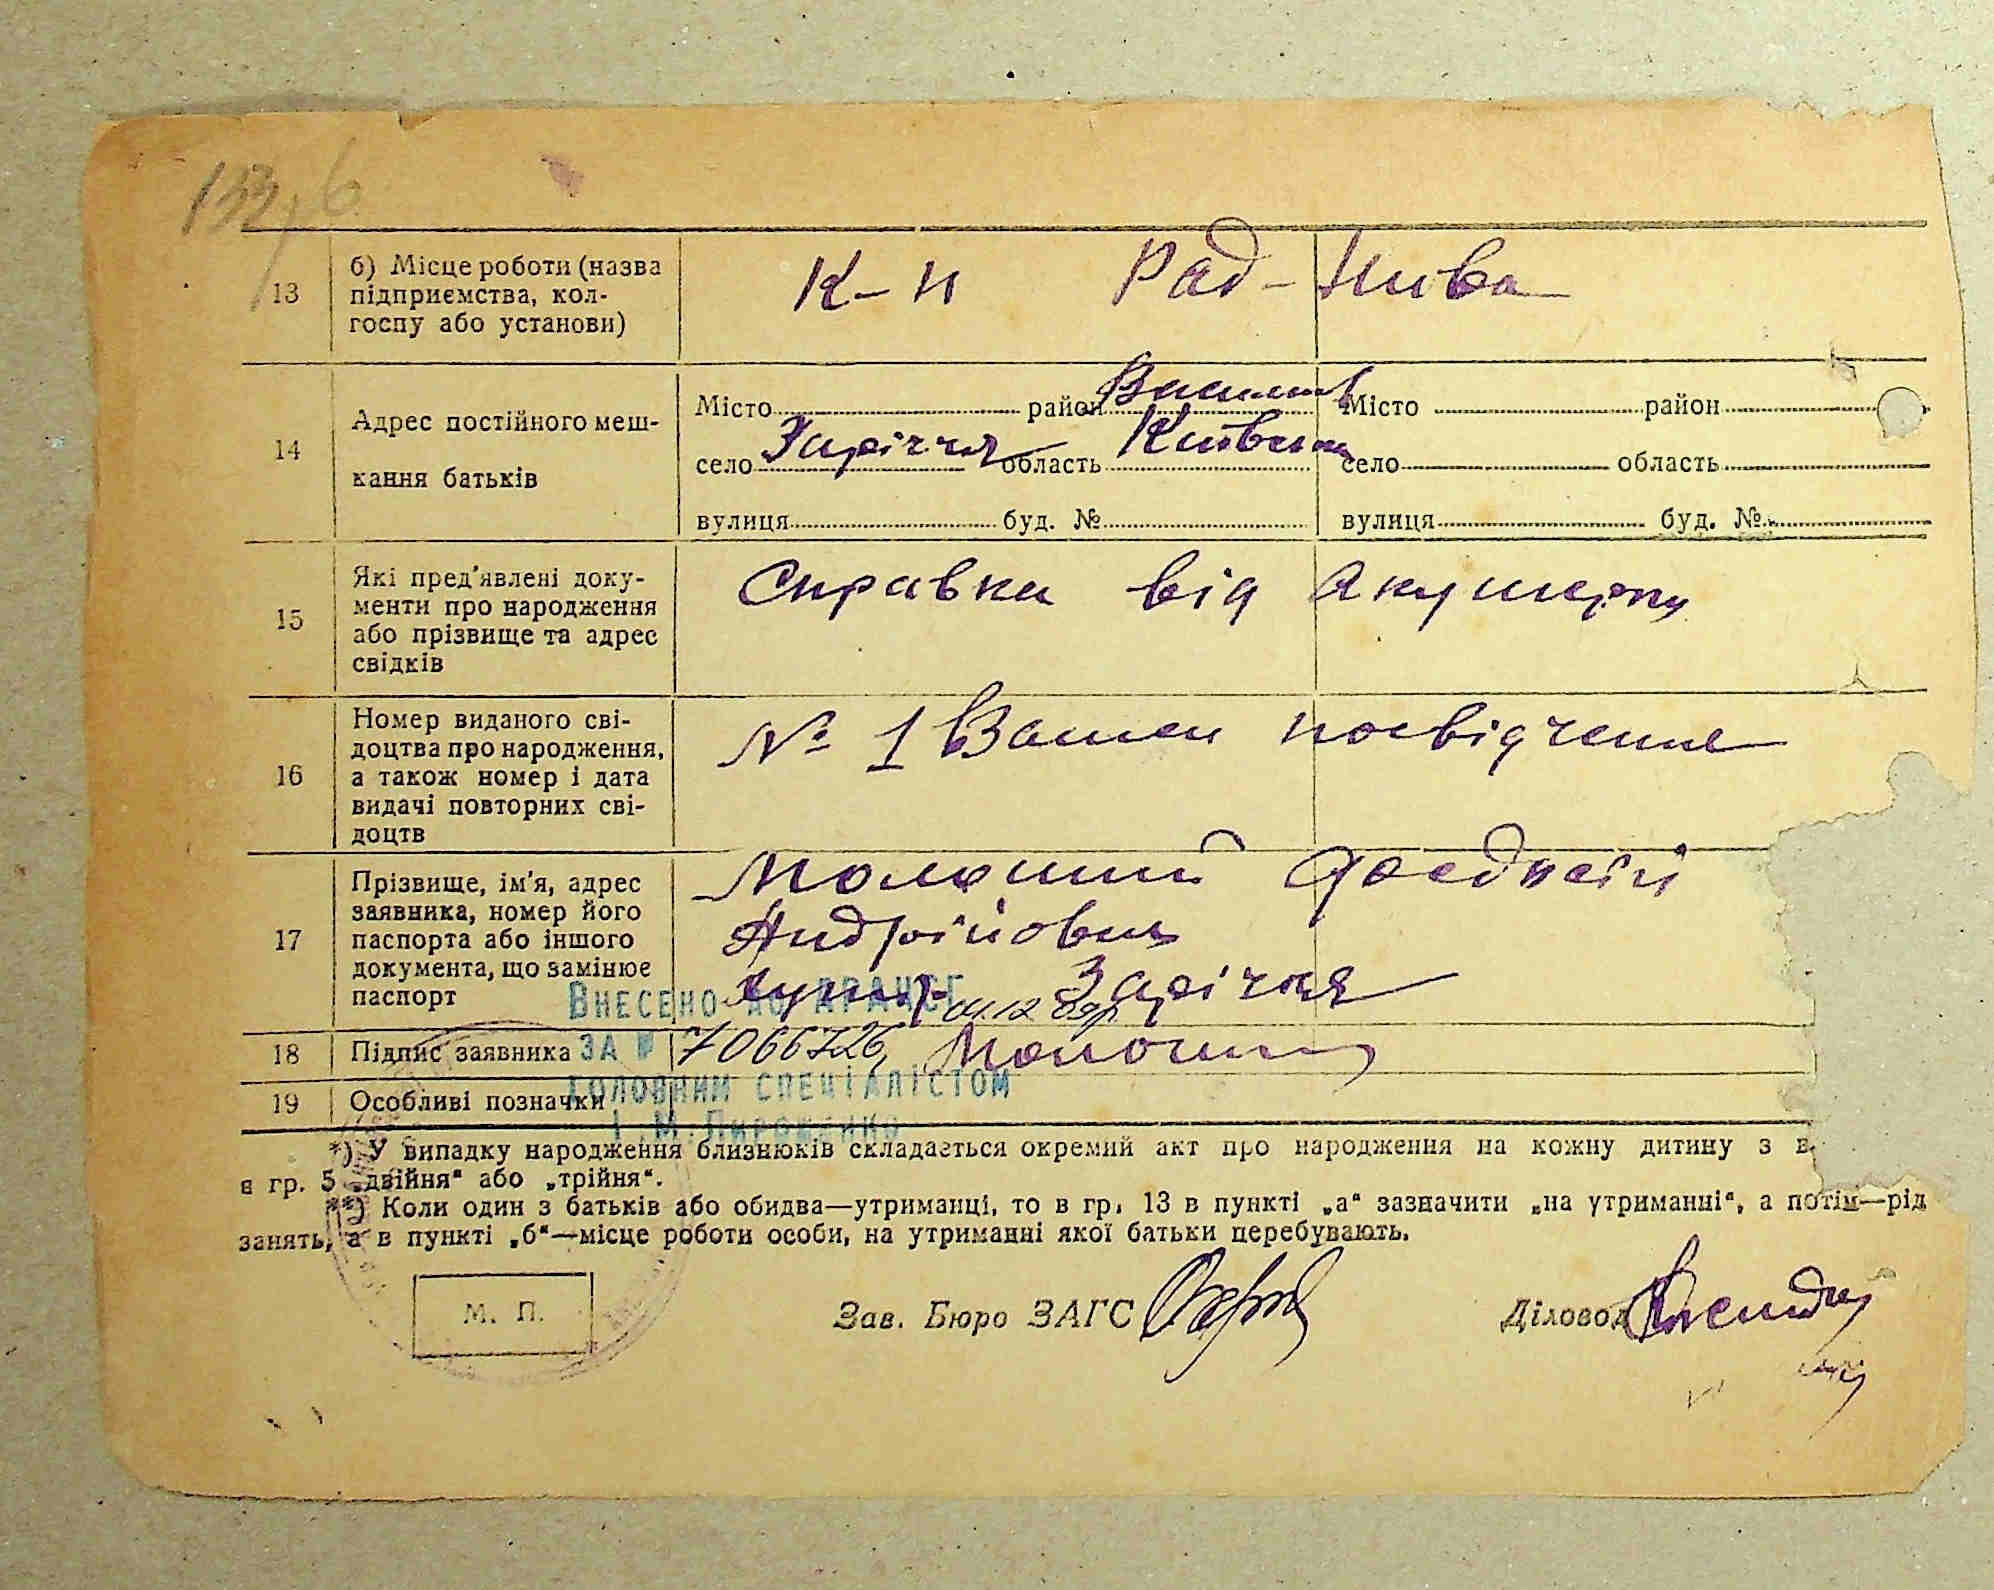 133
13 б) Місце роботи (назва підприємства, кол-
госпу або установи)
К-п Рад-Нива
14 Адрес постійного меш-
кання батьків
Місто район Василь Місто район
село Заріччя область Київськ село область
вулиця буд. № вулиця буд. №
15 Які пред'явлені доку-
менти про народження
або прізвище та адрес
свідків
Справка від Акушерки
16 Номер виданого сві-
доцтва про народження,
а також номер і дата
видачі повторних сві-
доцтв
№ 1 посвідчення
17 Прізвище, ім'я, адрес
заявника, номер його
паспорта або іншого
документа, що замінює
паспорт
Андрійович
Заріччя
Внесено до ДРАЦСГ
04.12 09р.
18 Підпис заявника
за № 7066726
головним спеціалістом
19 Особливі позначки
І.М.Пироженко
*) У випадку народження близнюків складається окремий акт про народження на кожну дитину з в
в гр. 5 „двійня“ або „трійня“.
**) Коли один з батьків або обидва—утриманці, то в гр. 13 в пункті „а“ зазначити „на утриманні“, а потім—рід
занять, а в пункті „б“—місце роботи особи, на утриманні якої батьки перебувають.
М. П. Зав. Бюро ЗАГС Діловод